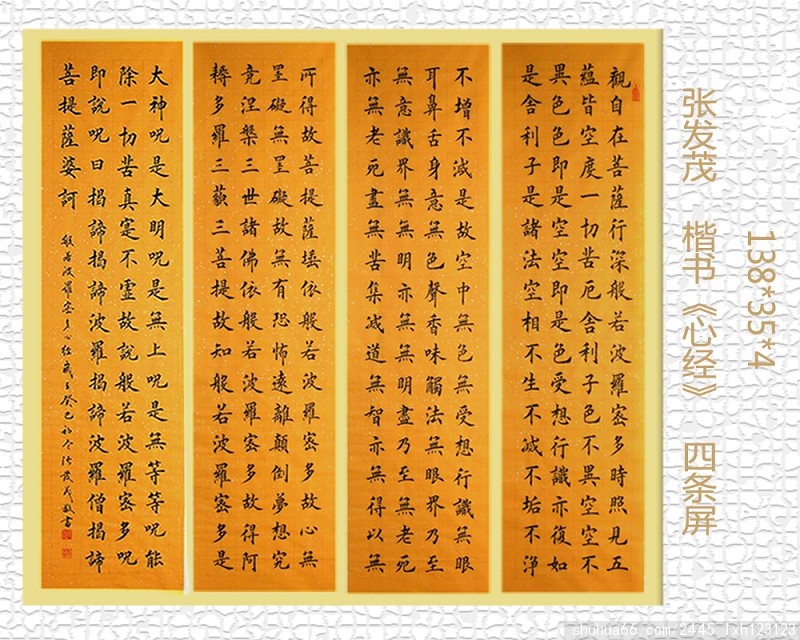 觀自在菩薩行深般若波羅密多時照見五
蘊皆空度一切苦厄舍利子色不異空空不
異色色即是空空即是色受想行識亦復如
是舍利子是諸法空相不生不滅不垢不淨
不增不減是故空中無色無受想行識無眼
耳鼻舌身意無色聲香味觸法無眼界乃至
無意識界無無明亦無無明盡乃至無老死
亦無老死盡無苦集滅道無智亦無得以無
所得故菩提薩埵依般若波羅密多故心無
罣礙無罣礙故無有恐怖遠離顛倒夢想究
竟涅槃三世諸佛依般若波羅密多故得阿
耨多羅三藐三菩提故知般若波羅密多是
大神呪是大明呪是無上呪是無等等呪能
除一切苦真寔不虛故說般若波羅密多呪
即說呪曰揭諦揭諦波羅揭諦波羅僧揭諦
菩提薩婆訶
般若波羅密多心經歲在癸巳張發茂敬書
138*35*4
张发茂 楷书《心经》 四条屏
shuhua66.com/2445_lxh123123